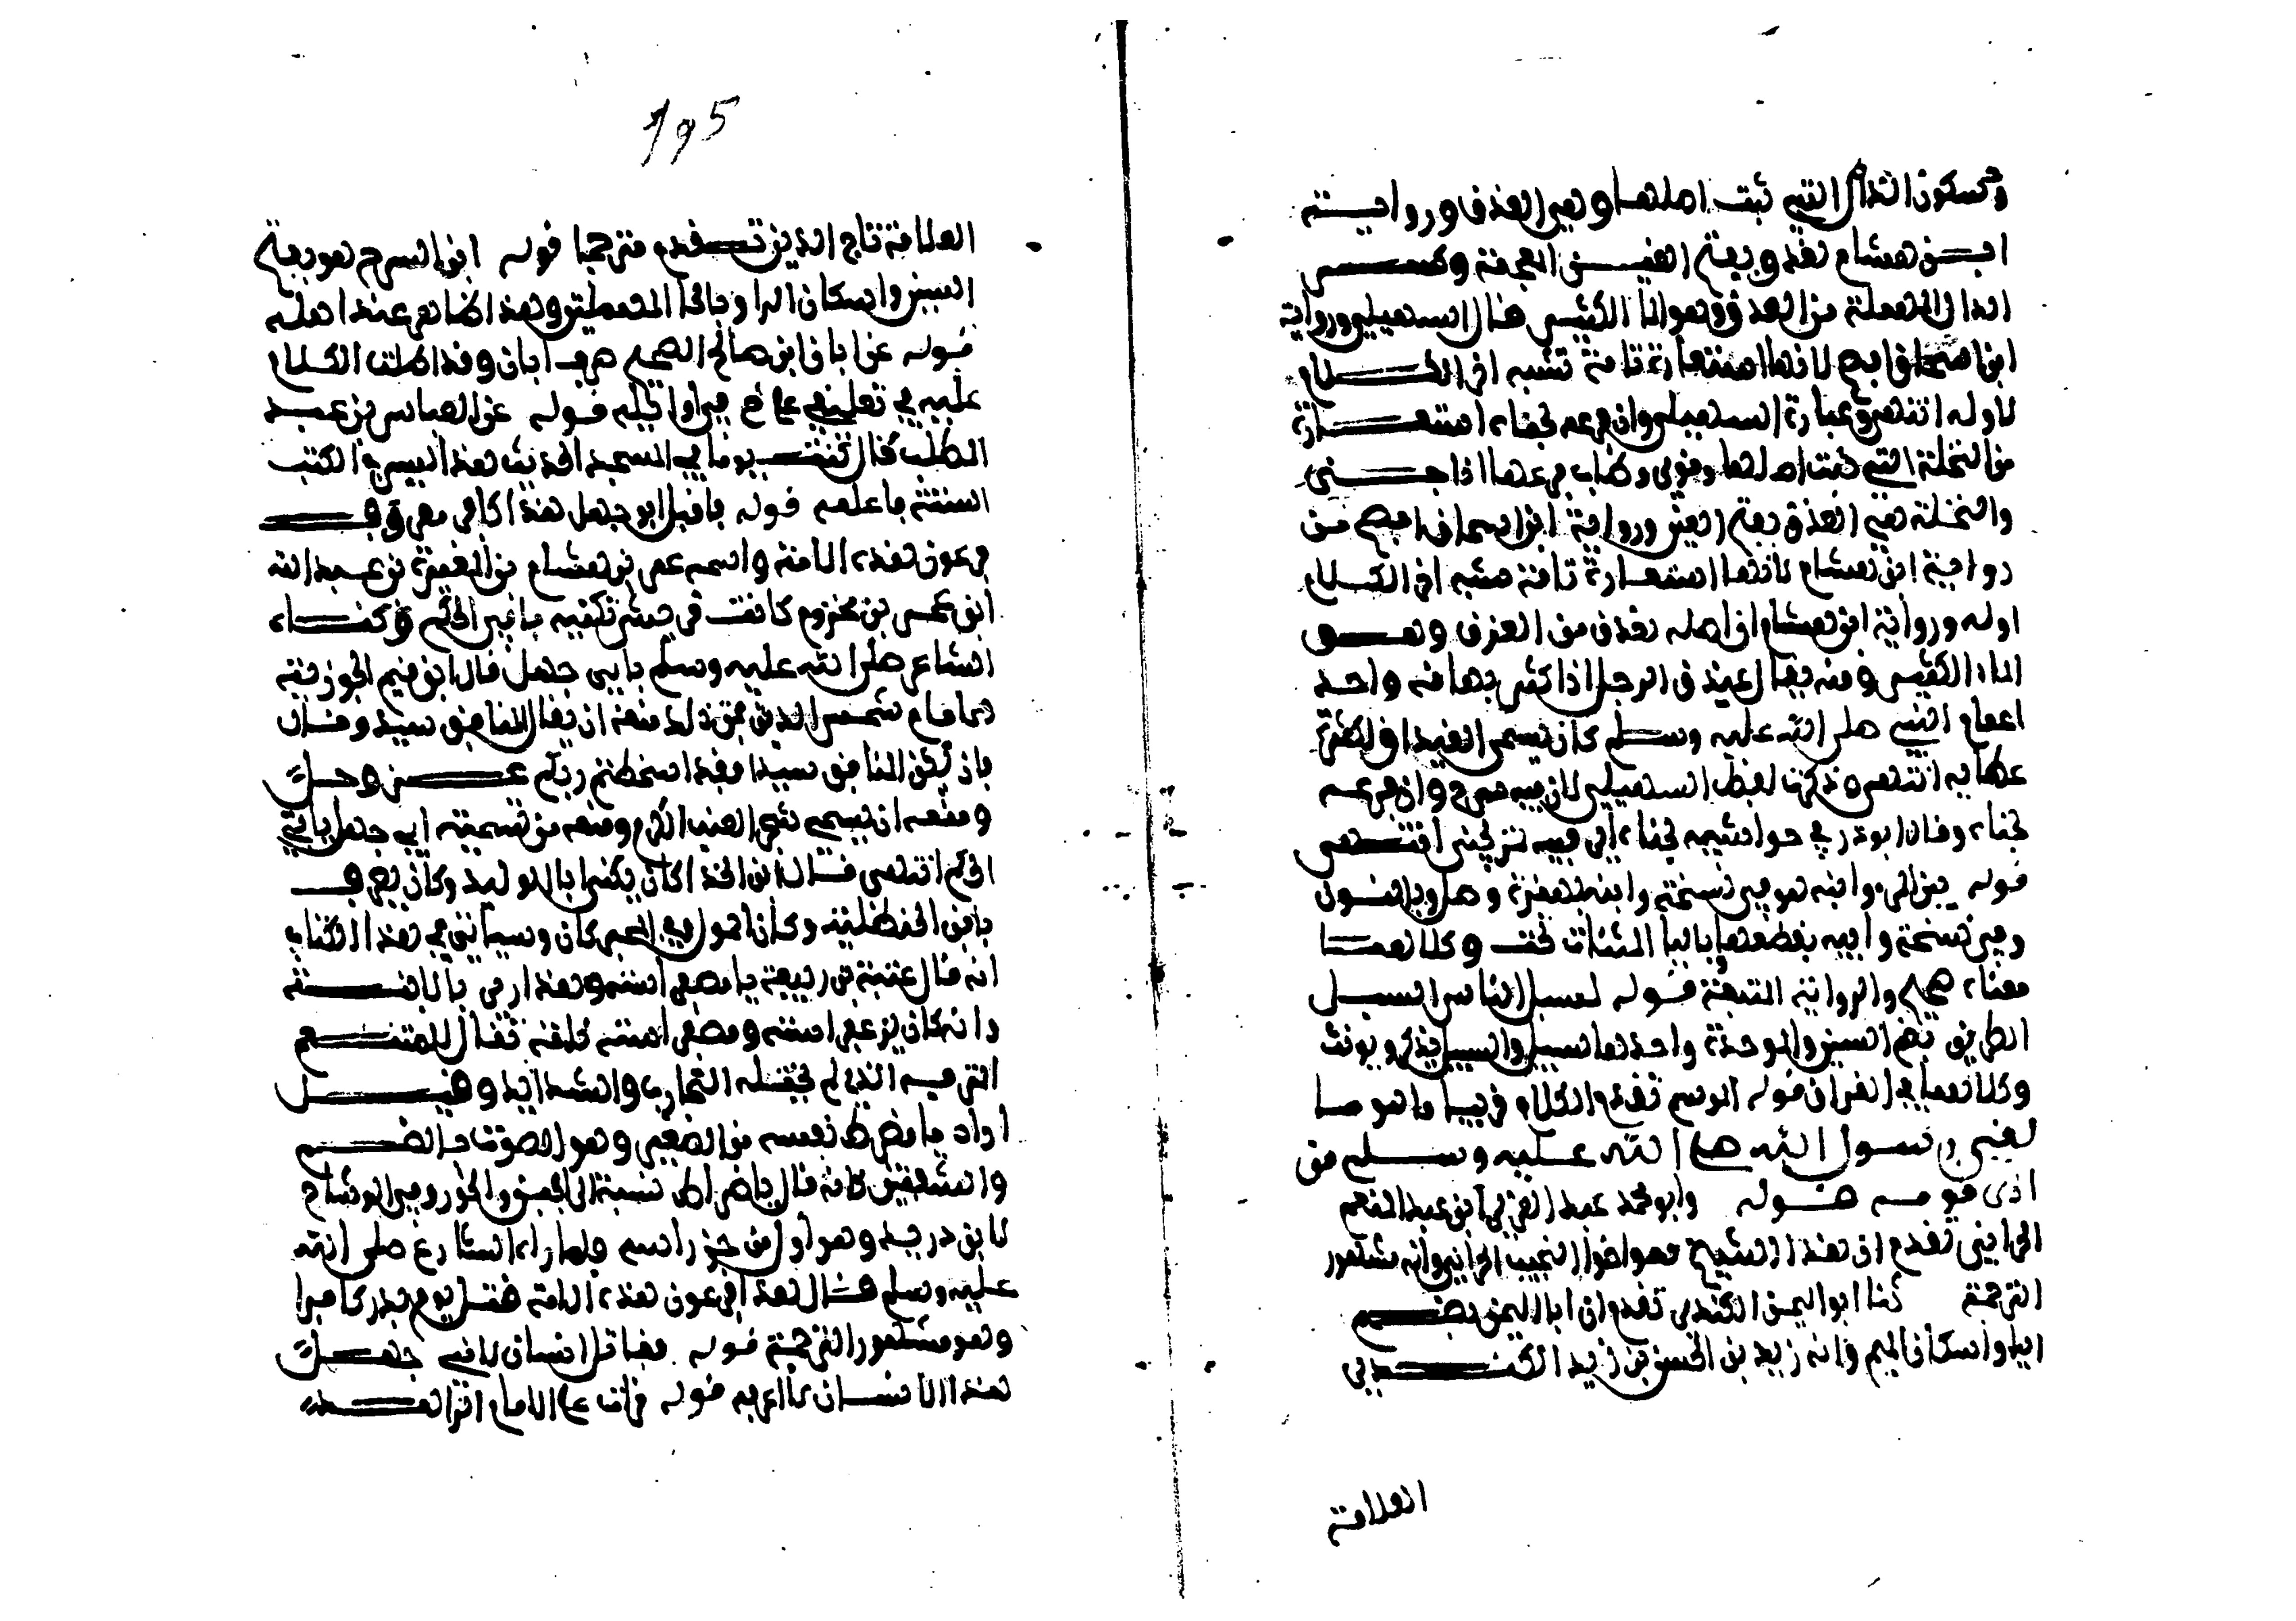 وسكون الذال التي ثبت اصلها وهي العذق ورواية
ابن هشام لغدق بفتح الغين المعجمة وكسر
الدال المهملة من الغدق وهو الماء الكثير قال السهيلي ورواية
ابن اسحاق افصح لانها استعارة تامة تشبه اخر الكلام
لاوله انتهى وعبارة السهيلي وان فرعه لجناه استعارة
من النخلة التي ثبت اصلها وقوي وطاب فرعها اذا جنى
والنخلة هي العذق بفتح العين ورواية ابن اسحاق افصح من
رواية ابن هشام لانها استعارة تامة يشبه اخر الكلام
اوله ورواية ابن هشام ان اصله لغدق من الغدق وهو
الماء الكثير ومنه يقال غيدق الرجل اذا كثر بصاقه واحد
اعمام النبي صلى الله عليه وسلم كان يسمى الغيداق لكثرة
عطائه انتهى وذكرت لفظ السهيلي لان فيه صرح وان فرعه
لجناه وقال ابوذر في حواشيه لجناه اي فيه تمر يجنى انتهى
قوله بين المرء وابنه هو في نسخة وابنه بهمزة وصل وبالنون
وفي نسخة وابيه بقطعها بالياء المثناة تحت وكلاهما
معناه صحيح والرواية المتبعة قوله لسبل الناس السبل
الطريق بضم السين والموحدة واحدها سبيل والسبيل يذكر ويونث
وكلاهما في القران قوله الموسم تقدم الكلام قريبا ما هو ما
لقي رسول الله صلى الله عليه وسلم من
اذى قومه قوله وابو محمد عبد العزيز ابن عبد المنعم
الحراني تقدم ان هذا الشيخ هو اخو النجيب الحراني وانه مشهور
الترجمة ثنا ابو اليمن الكندي تقدم ان ابا اليمن بضم
الياء واسكان الميم وانه زيد بن الحسن بن زيد الكندي
العلامة
195
العلامة تاج الدين تقدم مترجما قوله ابن السرح هو بفتح
السين واسكان الراء وبالحاء المهملتين وهذا ظاهر عند اهله
قوله عن ابان ابن صالح الصحيح صرف ابان وقد اطلت الكلام
عليه في تعليقي على خ في اوائله قوله عن العباس بن عبد
المطلب قال كنت يوما في المسجد الحديث هذا ليس في الكتب
الستة فاعلمه قوله فاقبل ابو جهل هذا كافر معروف
فرعون هذه الامة واسمه عمرو بن هشام بن المغيرة بن عبد الله
ابن عمر بن مخزوم كانت قريش تكنيه بابي الحكم وكناه
الشارع صلى الله عليه وسلم بابي جهل قال ابن قيم الجوزية
الامام شمس الدين من ذلك منعه ان يقال للمنافق سيد وقال
فان يكن المنافق سيدا فقد اسخطتم ربكم عز وجل
ومنعه ان يسمى شجر العنب الكرم ومنعه من تسمية ابي جهل بابي
الحكم انتهى قال ابن الحذاء كان يكنى ابا الوليد وكان يعرف
بابن الحنظلية وكان احول وسياتي في هذا الكتاب
انه قال عتبة بن ربيعة يا مصفر استه وهذا رمي بالابنة
وانه كان يزعفر استه ومصفر استه كلمة تقال للمتنعم
المترفه الذي لم تحنكه التجارب والشدائد وقيل
اراد يا مضرط نفسه من الصفير وهو الصوت بالفم
والشفتين كانه قال يا ضراط نسبة الى الجبن والخور وفي الوشاح
لابن دريد وهو اول من حز راسه ولما راه الشارع صلى الله
عليه وسلم قال هذا فرعون هذه الامة قتل يوم بدر كافرا
وهو مشهور الترجمة قوله فقال انسان لابي جهل
هذا الانسان لا اعرفه قوله قرات على الامام الزاهد